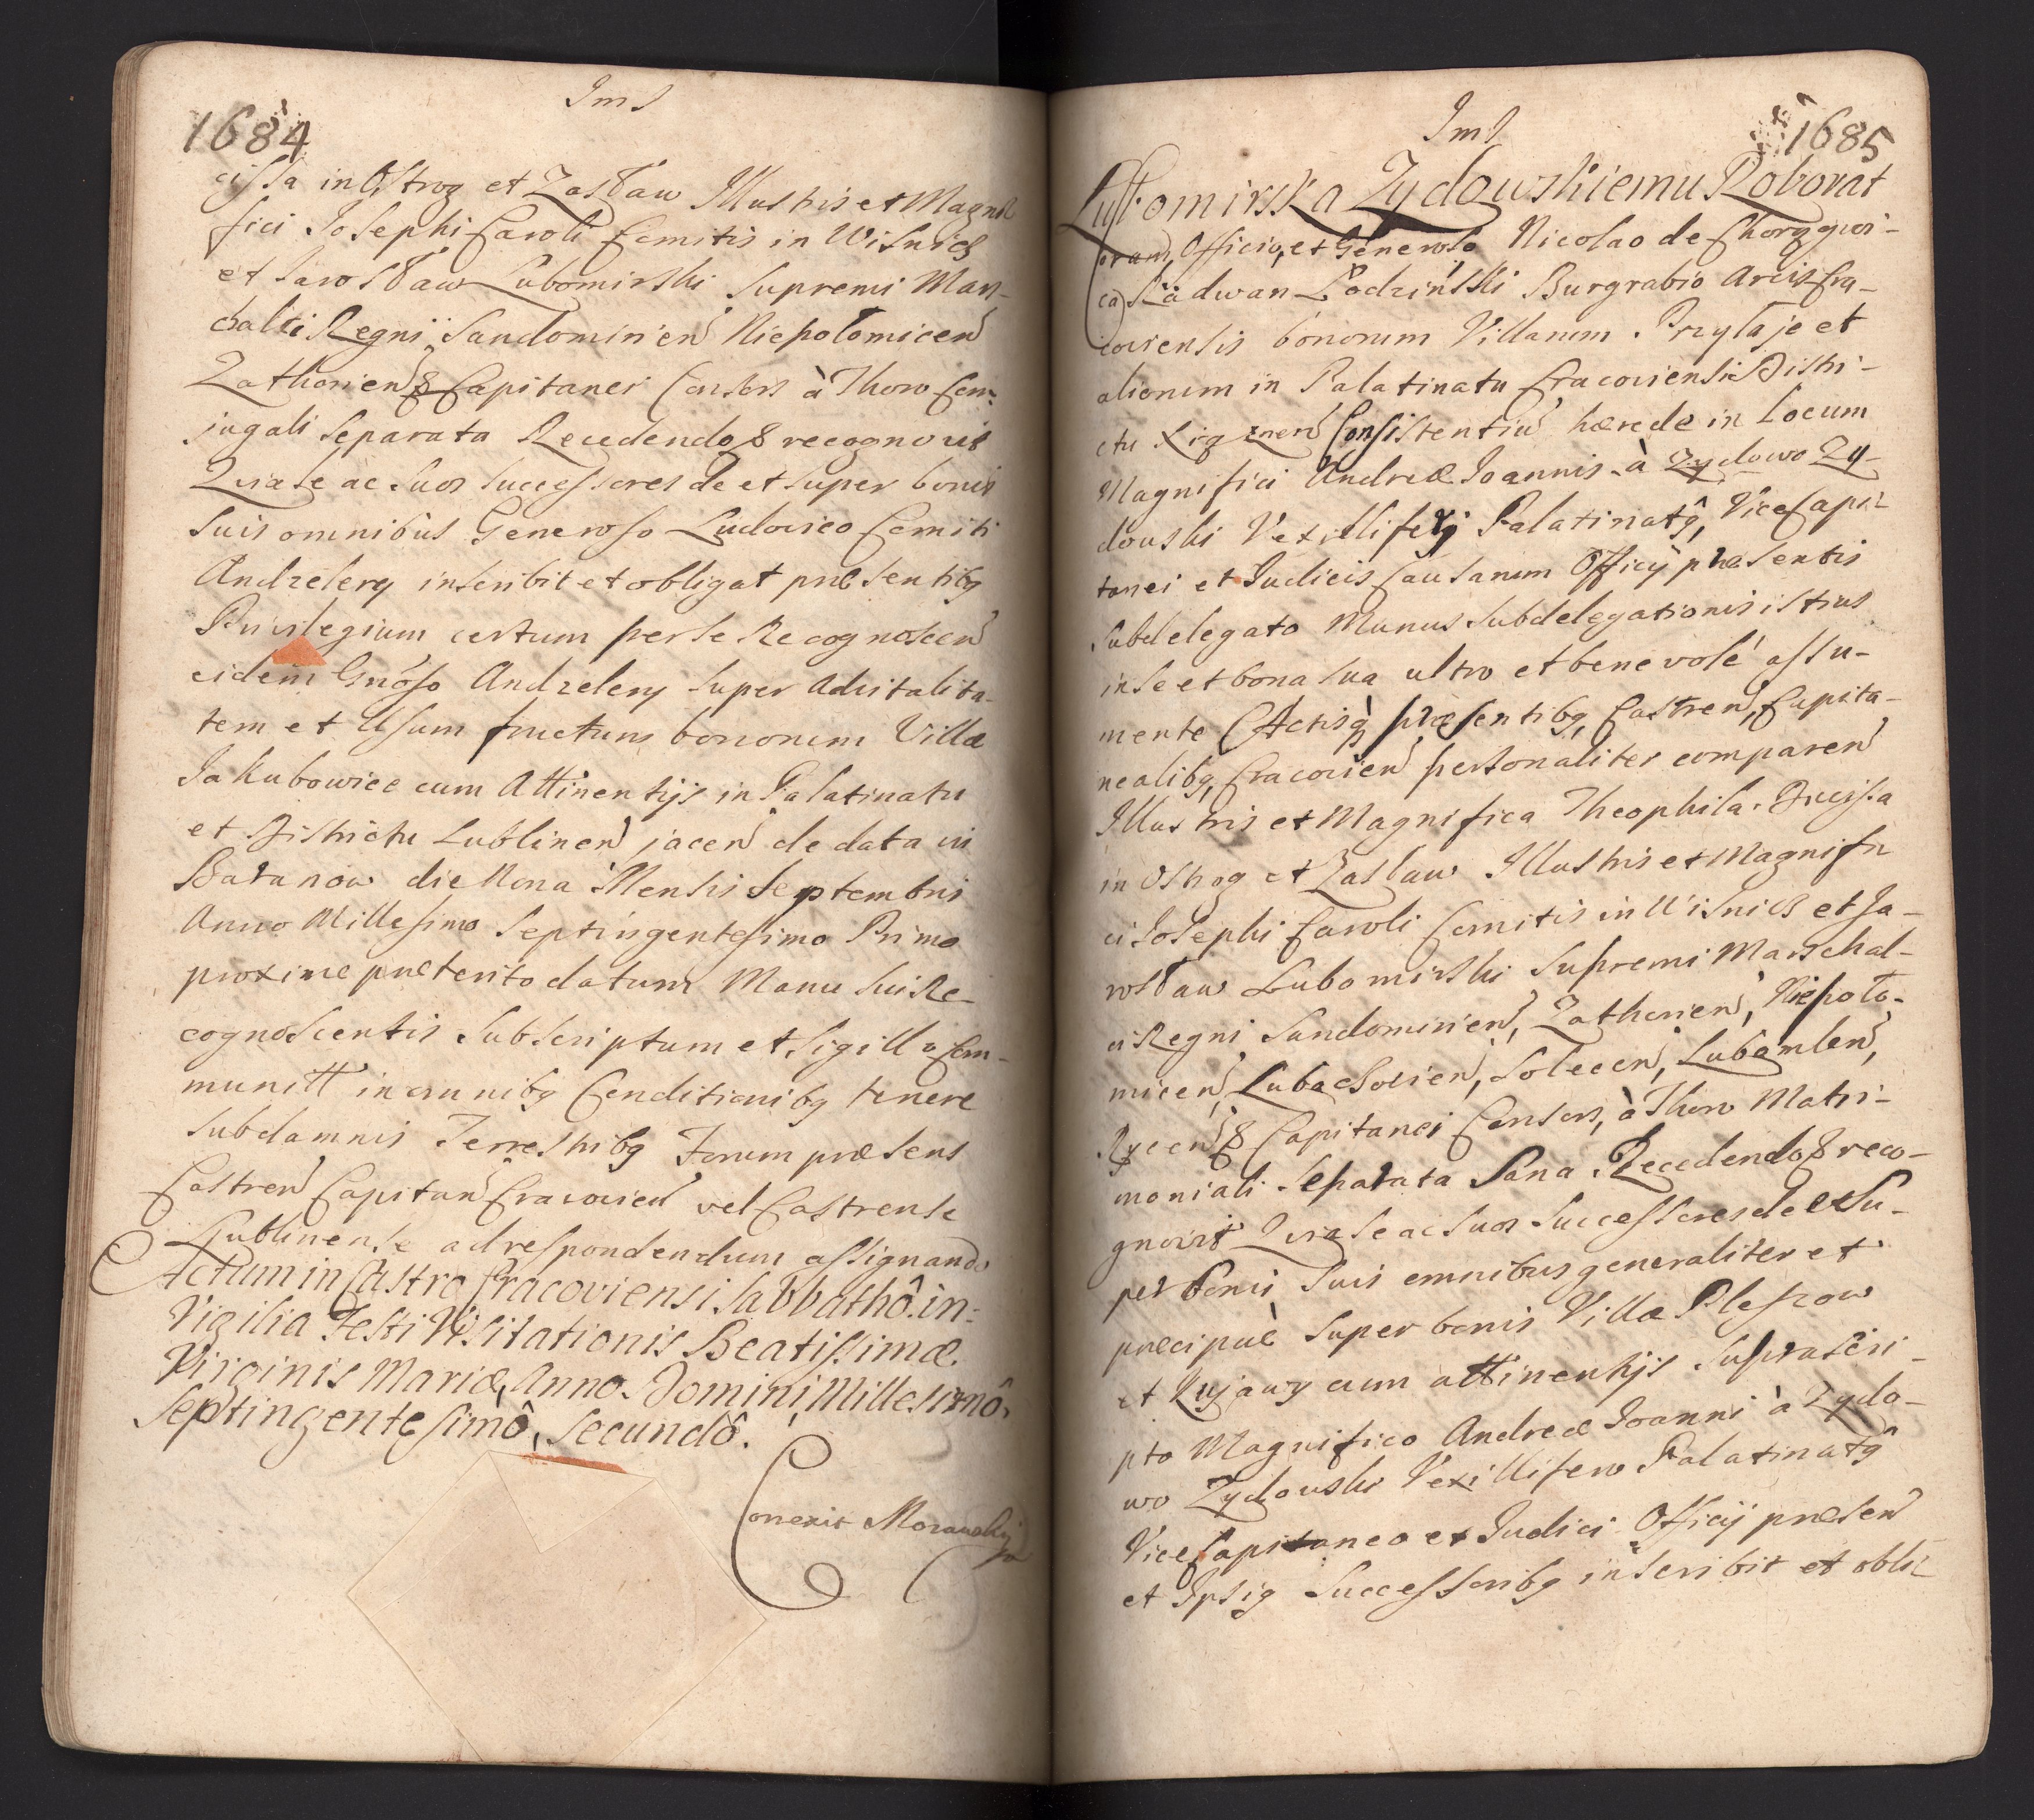 Ims
1684
cissa in Ostrog et Zasław Illustris et Magni
fici Josephi Caroli Comitis in Wisnicz
et Jarosław Lubomirski Supremi Mar-
chalci Regni, Sandomirien Niepołomicen
Zathorien & Capitanei Consors à Thoro Con-
jugali Separata Recedendo & recognovit
Quia se ac Suos Successores de et Super bonis
Suis omnibus Generoso Ludovico Comiti
Andzelery inscribit et obligat præsentibq
Privilegium certum per se Recognoscen
eidem Gnoso Andzelery Super Advitalita-
tem et Usum fructum bonorum Villæ
Jakubowice cum Attinentijs in Palatinatu
et Districtu Lublinen jacen de data in
Baranow die Nona Mensis Septembris
Anno Millesimo Septingentesimo Primo
proxime præterito datum Manu sui Re-
cognoscentis Subscriptum et Sigillo Com-
munitt in omnibq Conditionibq tenere
Sub damnis Terrestribq Forum præsens
Castren Capitan Cracovien vel Castrense
Lublinense ad respondendum assignando
Actum in Castro Cracoviensi Sabbathô in-
Vigilia Festi Visitationis Beatissimæ
Virginis Mariæ, Anno Domini Millesimô,
Septingentesimô, Secundô.
Conexit Morawskj
Ims
1685
Lubomirska Zydowskiemu Roborat
Coram Officio, et Generoso Nicolao de Chorągwi-
ca Radwan Łodziński Burgrabio Arcis Cra-
coviensis bonorum Villarum Przytaje et
aliorum in Palatinatu Cracoviensi Distri-
ctu Xiqznen Consistentiu hærede in Locum
Magnifici Andreæ Joannis à Zydowo Zy-
dowski Vexilliferj Palatinatq, ViceCapi-
tanei et Judicis Causarum Officij præsentis
Subdelegato Munus Subdelegationis istius
in se et bona sua ultro et benevolé assu-
mente Actisq præsentibq, Castren, Capita-
nealibq, Cracovien personaliter comparen
Illustris et Magnifica Theophila Ducissa
in Ostrog et Zasław Illustris et Magnifi
ci Josephi Caroli Comitis in Wisnicz et Ja-
rosław Lubomirski Supremi Marschal-
ci Regni Sandomirien, Zathorien, Niepoło-
micen, Lubaczovien, Solecen, Lubomlen,
Rycen & Capitanei Consors, à Thoro Matri-
moniali Separata Sana Recedendo & reco-
gnovit Quia se ac Suos Successores de et Su-
per bonis Suis omnibus generaliter et
præcipuè Super bonis Villæ Pleszow
et Kujawy cum attinentijs Suprascri-
pto Magnifico Andreæ Joanni à Zydo-
wo Zydowski Vexillifero Palatinatq
ViceCapitaneo et Judici Officij præsen
et Ipsiq Successoribq inscribit et obli-